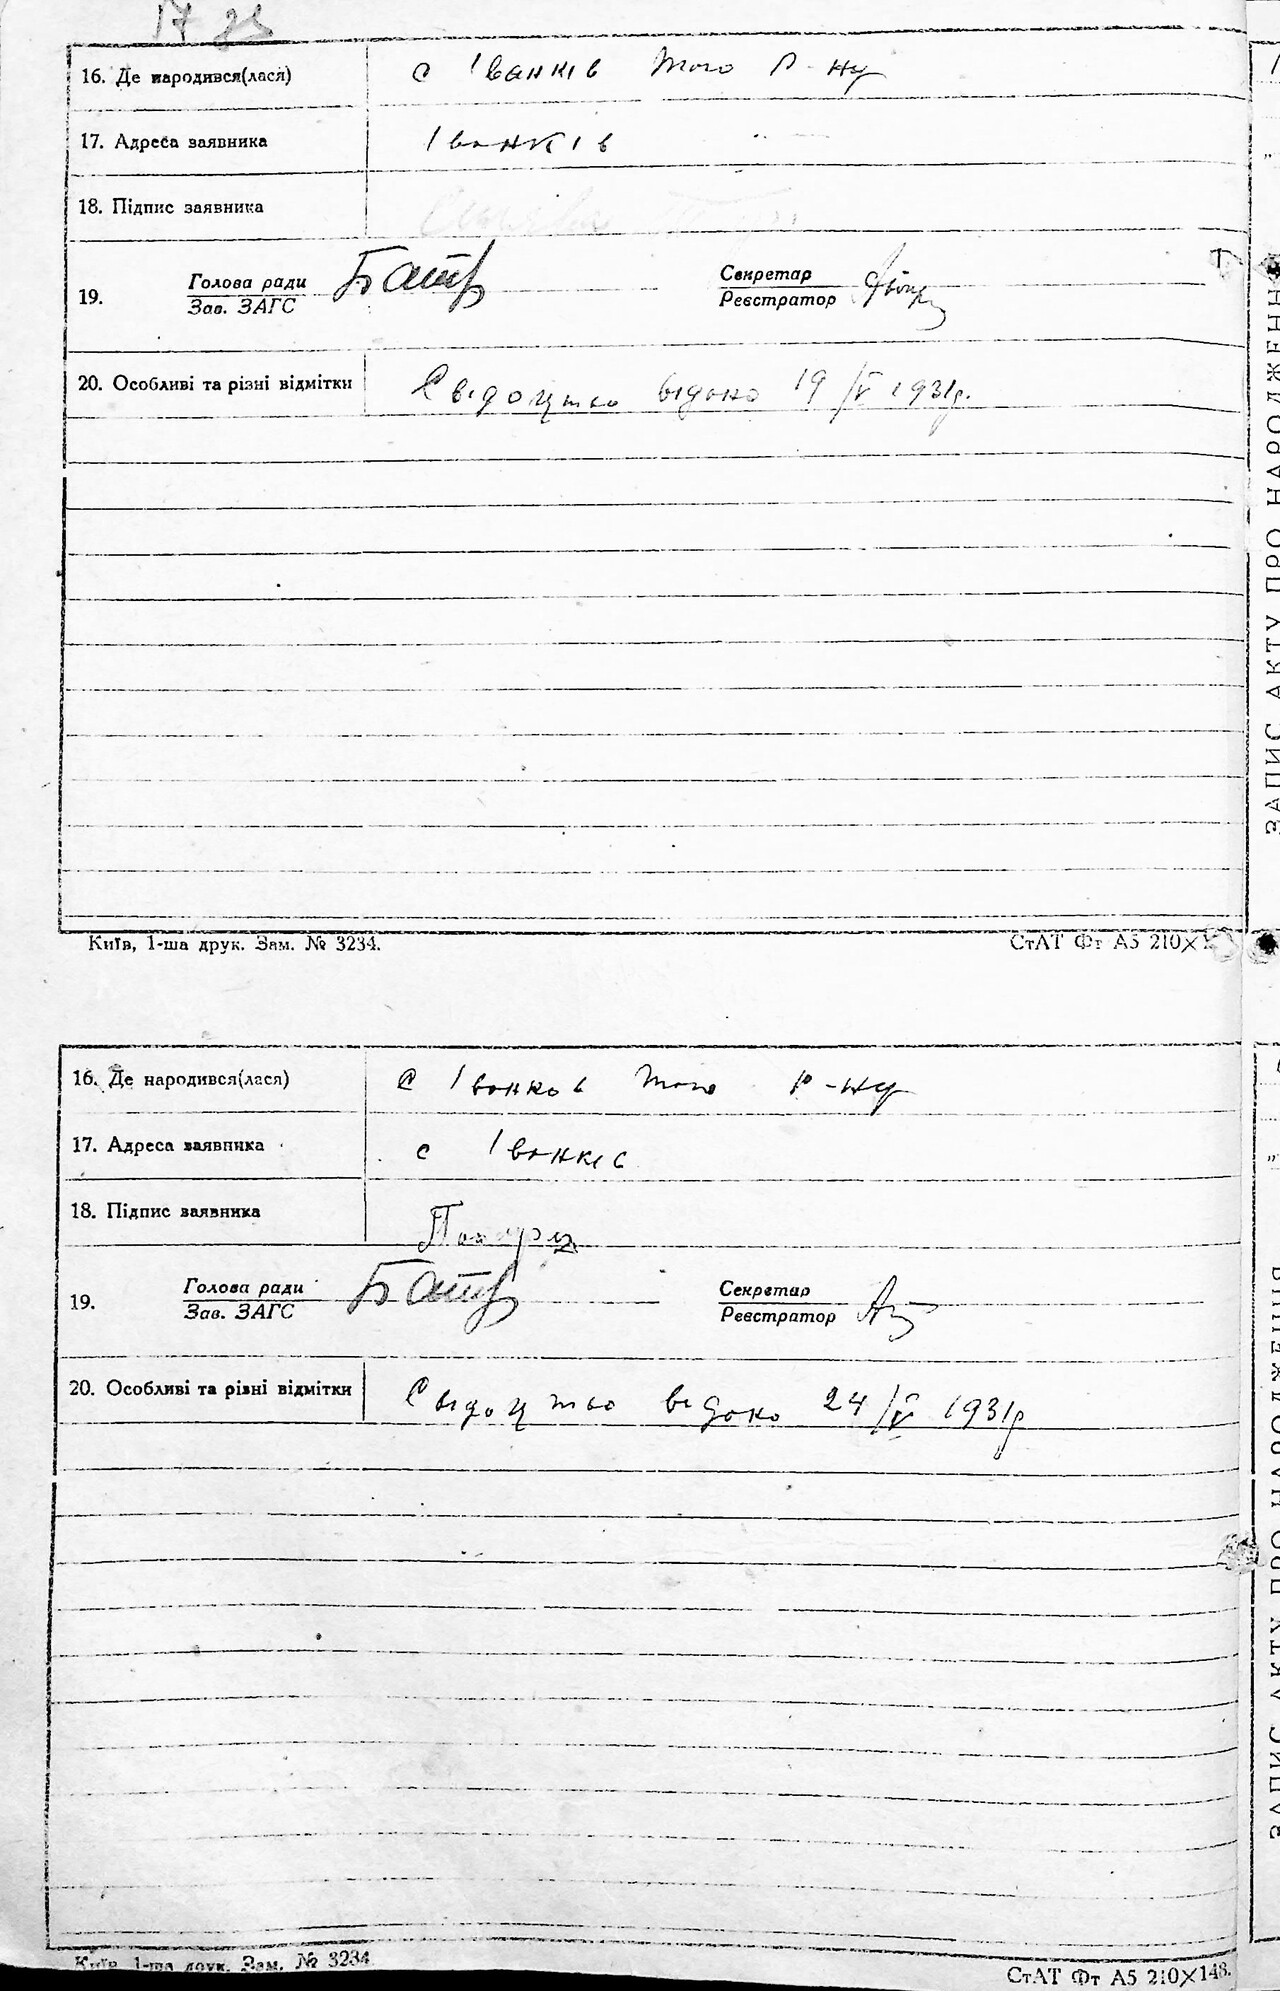 17 зв
16. Де народився(лася) с Іванків того р-ну
17. Адреса заявника Іванків
18. Підпис заявника
19. Голова ради Секретар
Зав. ЗАГС Реєстратор
20. Особливі та різні відмітки Свідоцтво відоно 19/V 1931р.
Київ, 1-ша друк. Зам. № 3234.
СтАТ Фт А5 210×1
16. Де народився(лася) с Іванков того р-ну
17. Адреса заявника с Іванків
18. Підпис заявника
19. Голова ради Секретар
Зав. ЗАГС Реєстратор
20. Особливі та різні відмітки Свідоцтво відоно 24/V 1931р
Київ, 1-ша друк. Зам. № 3234
СтАТ Фт А5 210×148.
ЗАПИС АКТУ ПРО НАРОДЖЕНН
ЗАПИС АКТУ ПРО НАРОДЖЕННЯ